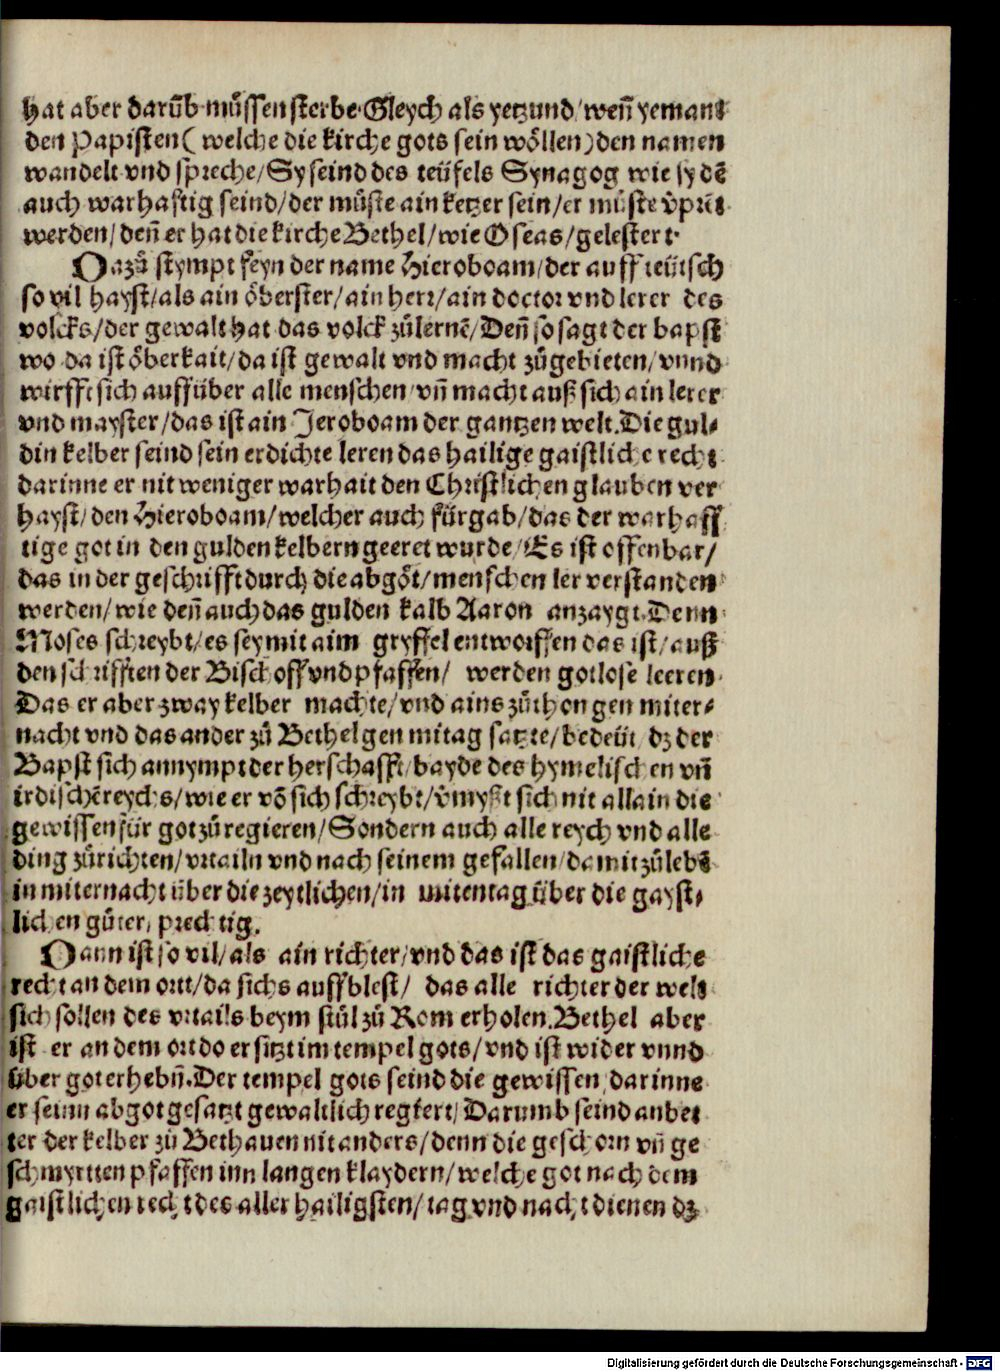 hat aber darũb muͤssen sterbe. Gleych als yetzund/ weñ yemant
den Papisten ( welche die kirche gots sein woͤllen ) den namen
wandelt vnd spreche/ Sy seind des teüfels Synagog wie sy dẽ
auch warhafftig seind/ der muͤste ain ketzer sein/ er muͤste v̈prẽt
werden/ deñ er hat die kirche Bethel/ wie Oseas/ gelestert.
Dazuͦ stympt feyn der name Hieroboam/ der auff teütsch
so vil hayst/ als ain oͤberster/ ain herr/ ain doctor vnd lerer des
volcks/ der gewalt hat das volck zuͦlernẽ/ Deñ so sagt der bapst
wo da ist oͤberkait/ da ist gewalt vnd macht zuͦgebieten/ vnnd
wirfft sich auff über alle menschen vñ macht auß sich ain lerer
vnd mayster/ das ist ain Jeroboam der gantzen welt. Die gul⸗
din kelber seind sein erdichte leren das hailige gaistliche recht
darinne er nit weniger warhait den Christlichen glauben ver
hayst/ den Hieroboam/ welcher auch fürgab/ das der warhaff
tige got in den gulden kelbern geeret wurde/ Es ist offenbar/
das in der geschrifft durch die abgoͤt/ menschen ler verstanden
werden/ wie deñ auch das gulden kalb Aaron anzaygt. Denn
Moses schreybt/ es sey mit aim gryffel entworffen das ist/ auß
den schrifften der Bischoff vnd pfaffen/ werden gotlose leeren.
Das er aber zway kelber machte/ vnd ains zuͦ thon gen miter⸗
nacht vnd das ander zuͦ Bethel gen mitag satzte/ bedeüt dz der
Bapst sich annympt der herschafft/ bayde des hymelischen vñ
irdischẽ reychs/ wie er võ sich schreybt/ v̈myßt sich nit allain die
gewissen für got zuͦ regieren/ Sondern auch alle reych vnd alle
ding zuͦrichten/ vrtailn vnd nach seinem gefallen/ damit zuͦlebẽ
in miternacht über die zeytlichen/ in mitentag über die gayst⸗
lichen guͤter, prechtig.
Dann ist so vil/ als ain richter/ vnd das ist das gaistliche
recht an dem ortt/ da sichs auffblest/ das alle richter der welt
sich sollen des vrtails beym stuͦl zuͦ Rom erholen. Bethel aber
ist er an dem ort do er sitzt im tempel gots/ vnd ist wider vnnd
über got erhebñ. Der tempel gots seind die gewissen/ darinne
er seinn abgot gesatzt gewaltlich regiert/ Darumb seind anbet
ter der kelber zuͦ Bethauen nit anders/ denn die geschorn vñ ge
schmyrtten pfaffen inn langen klaydern/ welche got nach dem
gaistlichen recht des aller hailigsten/ tag vnd nacht dienen dz
Digitalisierung gefördert durch die Deutsche Forschungsgemeinschaft - DFG